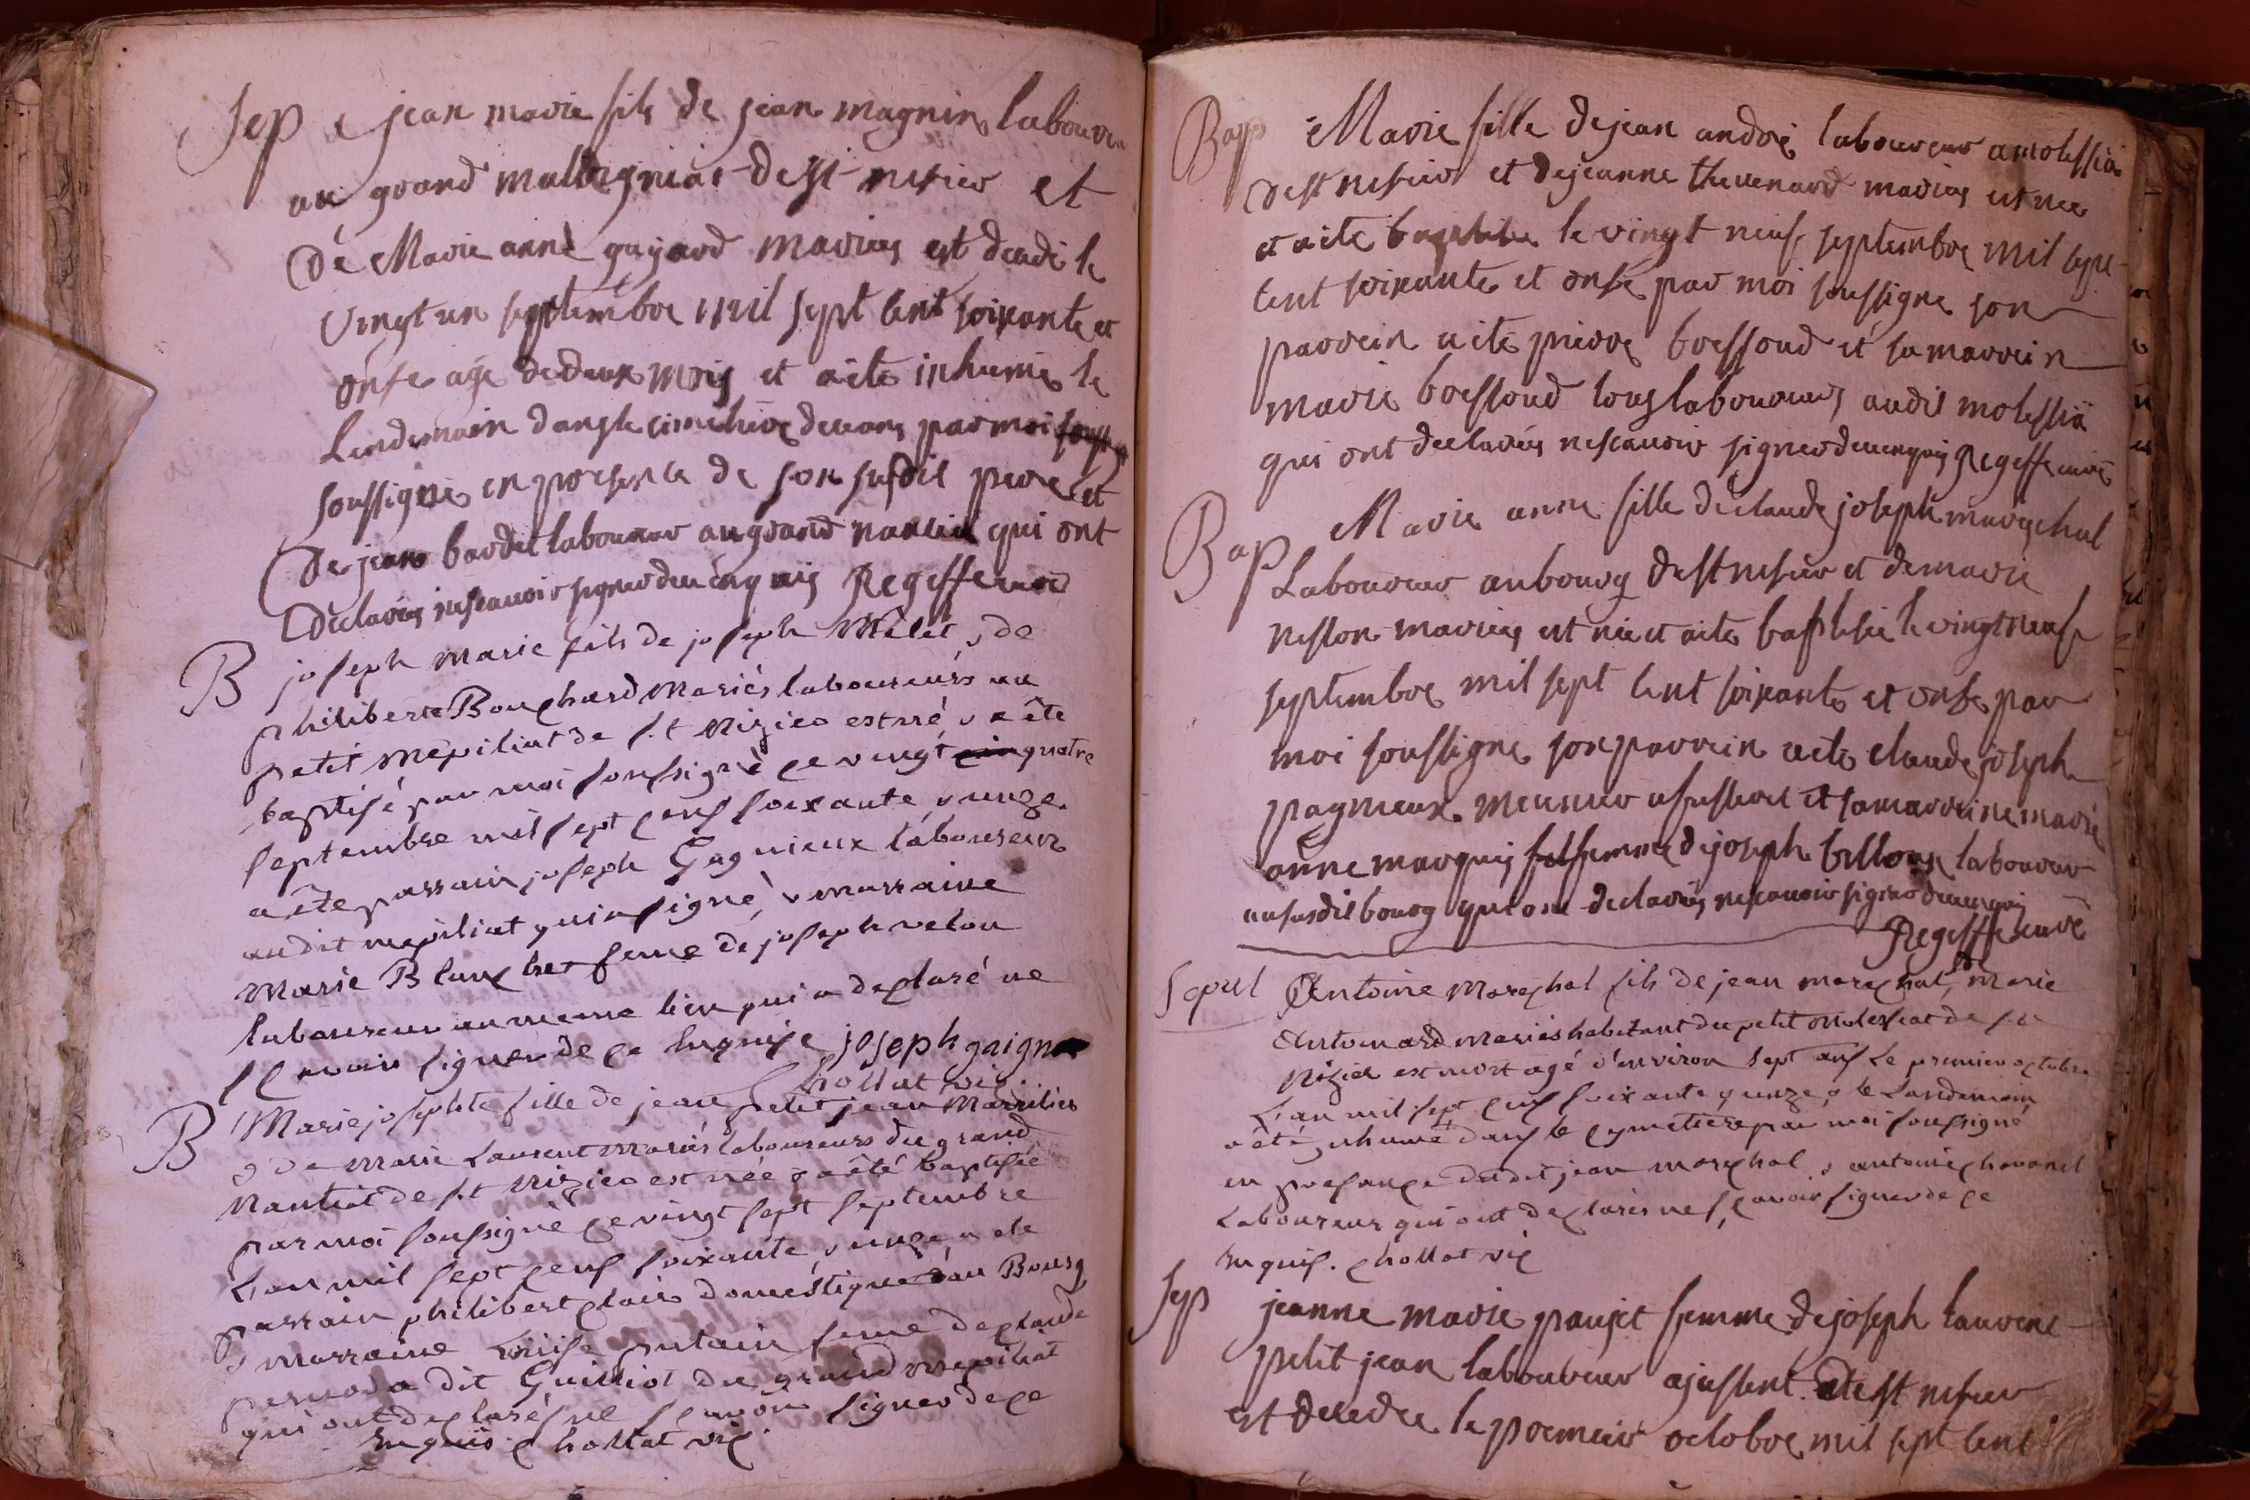 Sep jean marie fils de jean magnin laboureur
au grand malvigniat de st nisier et
de Marie anne guyard mariés est decedé le
vingt un septembre mil sept cent soixante et
onse agé de deux mois et aété inhumé le
Lendemain dans le cimetiere de ceans par moi
soussigné en presence de son susdit pere et
de jean bardet laboureur au grand nantiat qui ont
declarés ne scauoir signer de ce enquis Regeffe curé
B joseph marie fils de joseph Mêlét, de
philiberte Bouchard Mariés laboureurs au
petit mépiliat de s.t Nizier est né, a ête
baptisé par moi soussigné le vingt quatre
septembre mil sept cens soixante, unze.
a ête parrain joseph Gagnieux laboureur
audit mepiliat qui a signé, marraine
Marie Blanchet feme de joseph velou
laboureur au meme lieu qui a declaré ne
scavoir signer de ce Inquise joseph gaigne
chollat vic.
B Marie josephte fille de jean petit jean Marrilier
de Marie Laurent Mariés laboureurs du grand
Nantiat de s.t Nizier est née a êté baptisée
par moi soussigné le vingt sept septembre
L'an mil sept cens soixante, unze, a ete
parrain philibert clair doméstique au Bourg
marraine Louise putain feme de claude
dit Guilliot du grand mepiliat
qui ont declaré ne scavoir signer de ce
Inquis. chollat vic.
Bap Marie fille de jean andré laboureur a molessia
de st nisier et de jeanne thevenard mariés est née
et aété baptisée le vingt neuf septembre mil sept
cent soixante et onse par moi soussigné son
parrein aété pierre bressoud et sa marrein
marie bressoud tous laboureurs audit molessia
qui ont declarés ne scauoir signer de ce enquis Regeffe curé
Bap Marie anne fille de claude joseph marechal
Laboureur au bourg de st nisier et de marie
neslon mariés est née et aété baptisée le vingt neuf
septembre mil sept cent soixante et onse par
moi soussigné son parrein aété claude joseph
pagnieux meunier et sa marreine marie
anne marquis femme de joseph billoux laboureur
au susdit bourg qui ont declarés ne scauoir signer de ce enquis
Regeffe curé
Sepul Antoine Marechal fils de jean marechal, marie
Antoinard mariés habitant du petit molessiat de s.t
Nizier est mort agé d'environ sept ans Le premier octobre
L'an mil sept cens soixante, unze, le Landemain
a êté inhumé dans le cymetiere par moi soussigné
en presance dudit jean marechal, antoine chavanel
Laboureur qui ont declarés ne scavoir signer de ce
Inquis. chollat vic
Sep jeanne marie paujet femme de joseph laurent
petit jean laboureur de st nisier
est decedée le premier octobre mil sept cent